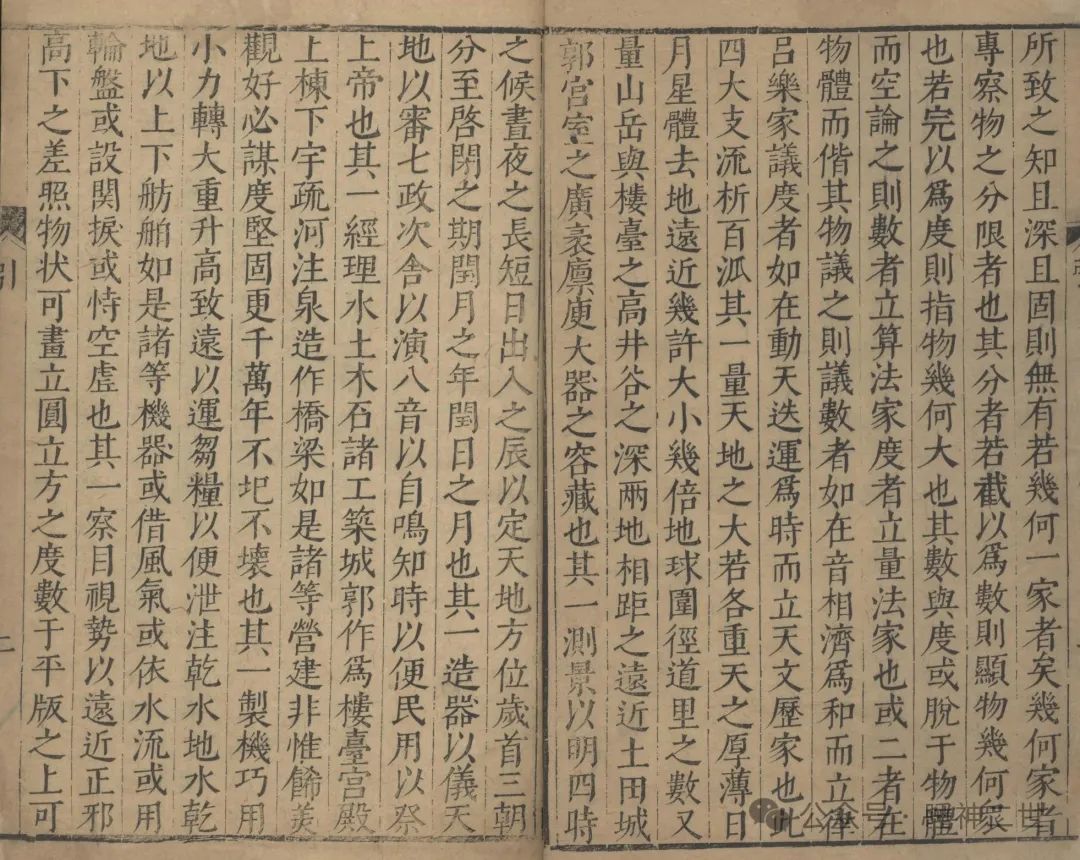 所致之知且深且固則無有若幾何一家者矣幾何家者
專察物之分限者也其分者若截以爲數則顯物幾何衆
也若完以爲度則指物幾何大也其數與度或脫于物體
而空論之則數者立算法家度者立量法家也或二者在
物體而偕其物議之則議數者如在音相濟爲和而立律
呂樂家議度者如在動天迭運爲時而立天文歷家也此
四大支流析百派其一量天地之大若各重天之厚薄日
月星體去地遠近幾許大小幾倍地球圍徑道里之數又
量山岳與樓臺之高井谷之深兩地相距之遠近土田城
郭宮室之廣袤廩庾大器之容藏也其一測景以明四時
之候晝夜之長短日出入之辰以定天地方位歲首三朝
分至啓閉之期閏月之年閏日之月也其一造器以儀天
地以審七政次舍以演八音以自鳴知時以便民用以祭
上帝也其一經理水土木石諸工築城郭作爲樓臺宮殿
上棟下宇疏河注泉造作橋梁如是諸等營建非惟飾美
觀好必謀度堅固更千萬年不圮不壞也其一製機巧用
小力轉大重升高致遠以運芻糧以便泄注乾水地水乾
地以上下舫舶如是諸等機器或借風氣或依水流或用
輪盤或設關捩或恃空虛也其一察目視勢以遠近正邪
高下之差照物狀可畫立圓立方之度數于平版之上可
引
公众号